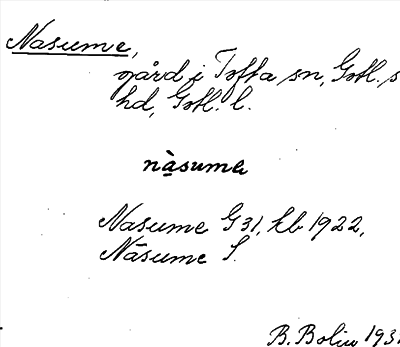 Nasume,
gård i Tofta sn, Gotl. s
hd, Gotl. l.
nàsuma
Nasume G31, kb 1922,
Näsume S.
B. Bolin 193